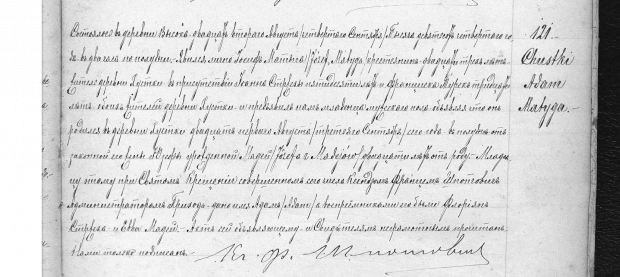 Состоялось въ деревни Высокѣ двадцать втораго Августа /четвертаго Сентября/ тысяча девятьсотъ четвертаго го-
да въ два часа по полудни. Явился лично Іосифъ Матыга /Józef Matyga/ крестьянинъ двадцати трехъ лѣтъ
житель деревни Хустки въ присутствіи Іоанна пятидесяти лѣтъ и Франциска тридцати
лѣтъ жителей деревни Хустки и предъявилъ намъ младенца мужескаго пола объявляя что онъ
родился въ деревни Хустки двадцать перваго Августа /третьяго Сентября/ сего года въ полдень отъ
законной его жены Юзефы урожденной Мадей /Józefa z Madejów/ двадцати лѣтъ роду. Младен-
цу этому при Святомъ Крещеніи совершенномъ сего числа Ксендзомъ
Администраторомъ Прихода дано имя Адамъ /Adam/ а воспріемниками его были Флоріянъ
и Ева Мадей. Актъ сей объявляющему и Свидѣтелямъ неграмотнымъ прочитанъ
Нами только подписанъ.
Кс. Ф.
121
Chustki
Adam
Matyga.